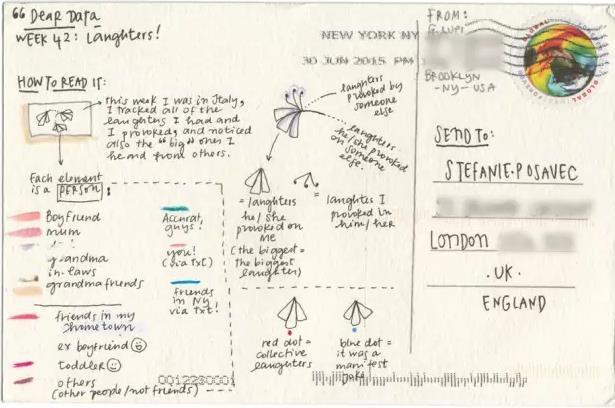 " Dear Data
WEEK 42: Laughters!
HOW TO READ IT:
This week I was in Italy,
I tracked all of the
laughters I had and
I provoked, and noticed
also the "big" ones I
heard from others.
Each element
is a PERSON:
Boyfriend
mum
grandma
in-laws
grandma friends
friends in my
hometown
ex boyfriend
toddler
others
(other people/not friends)
Accurat,
guys!
you!
(via txt)
friends
in NY
via txt!
laughters
provoked by
someone
else
laughters
he/she provoked
on someone
else.
= laughters
he/she
provoked on
me
(the biggest =
the biggest
laughter)
= laughter I
provoked in
him/her
red dot =
collective
laughters
blue dot =
it was a
manifest
joke
0012230001
NEW YORK NY
30 JUN 2015 PM
FROM:
G. LUPI
BROOKLYN
-NY- USA
GLOBAL
SEND TO:
STEFANIE·POSAVEC
LONDON
·UK·
ENGLAND